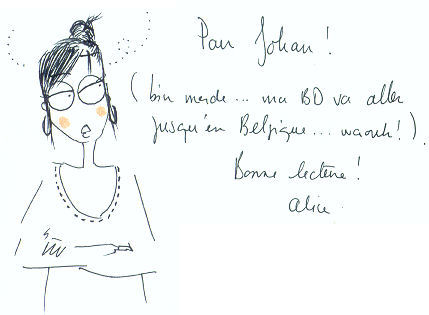 Pour Johan !
( bin merde ... ma BD va aller
jusqu'en Belgique ... waouh ! ).
Bonne lecture !
alice